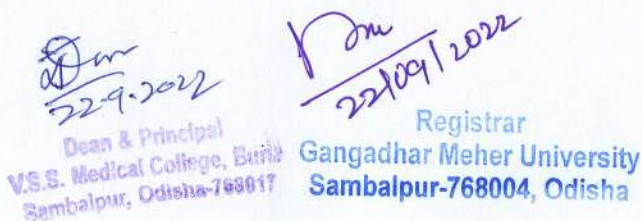 22-9-2022
Dean & Principal
V.S.S. Medical College, Burla
Sambalpur, Odisha-768017
22/09/2022
Registrar
Gangadhar Meher University
Sambalpur-768004, Odisha